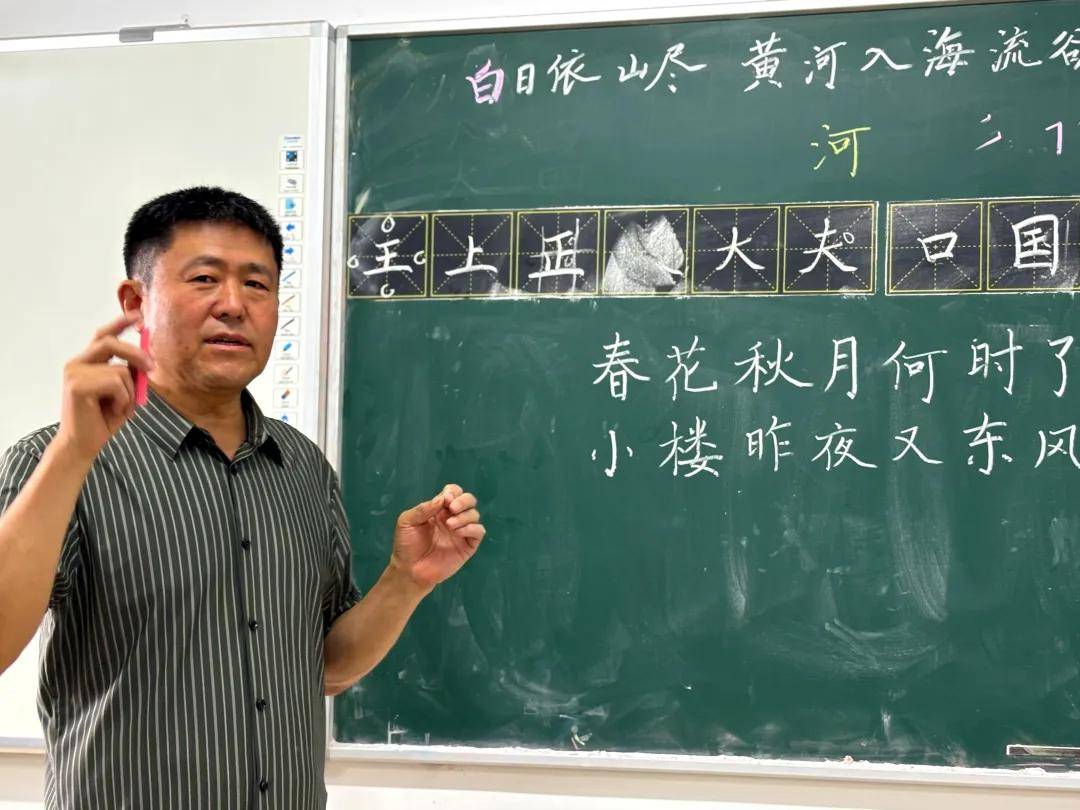 白日依山尽 黄河入海流
河
王 上 大 夫 口 国
春花秋月何时了
小楼昨夜又东风